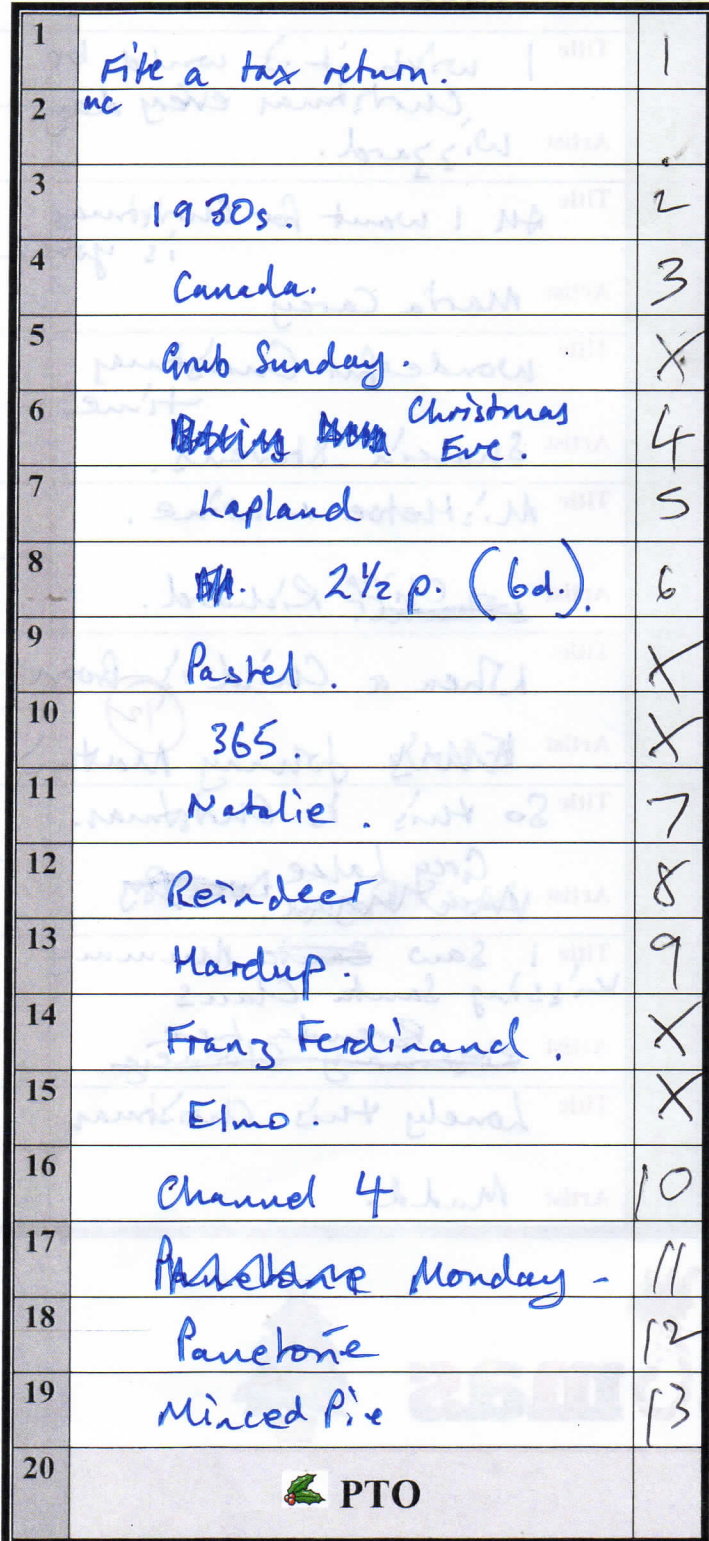 1 File a tax return. 1
2 mc .
3 1930s. 2
4 Canada. 3
5 Grub Sunday. X
6 Christmas
Eve. 4
7 Lapland 5
8 2½ p. (6d.). 6
9 Pastel. X
10 365. X
11 Natalie. 7
12 Reindeer 8
13 Hardup. 9
14 Franz Ferdinand. X
15 Elmo. X
16 Channel 4 10
17 Monday - 11
18 Panetone 12
19 Minced Pie 13
20 PTO